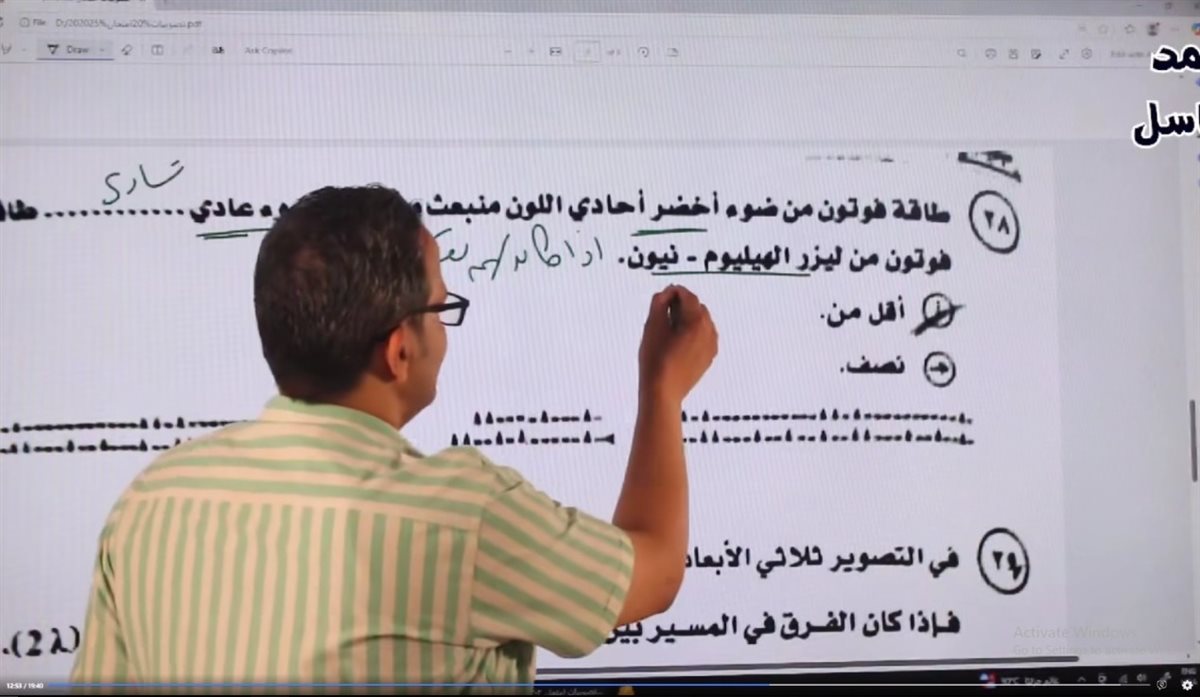 File
Draw
Ask Copilot
مد
اسل
٢٨
طاقة فوتون من ضوء أخضر أحادي اللون منبعث
ضوء عادي ............ طا
تساوى
فوتون من ليزر الهيليوم - نيون.
أقل من.
نصف.
٢٩
في التصوير ثلاثي الأبعاد
فإذا كان الفرق في المسير بين
(2λ).
Activate Windows
Go to Settings to activate Windows
12:53 / 19:40